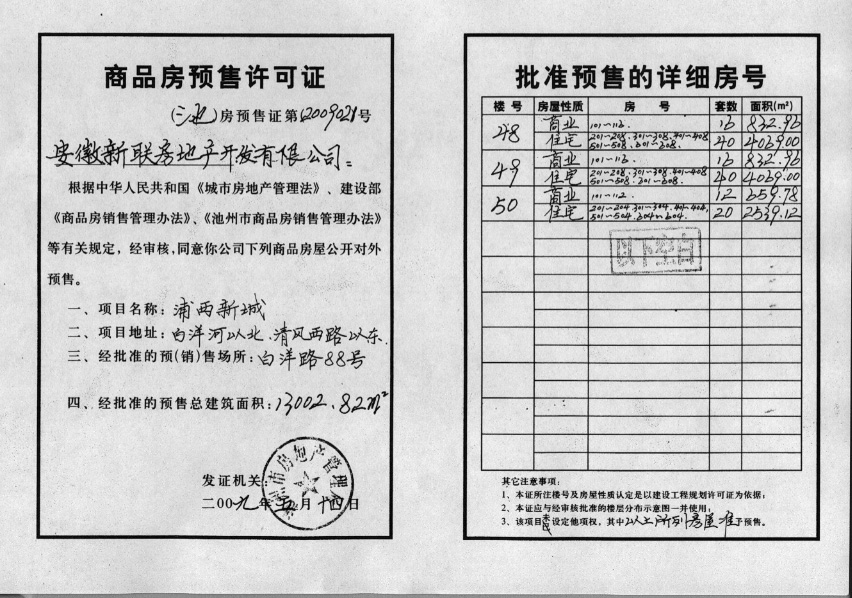 商品房预售许可证
(池)房预售证第2009021号
安徽新联房地产开发有限公司:
根据中华人民共和国《城市房地产管理法》、建设部
《商品房销售管理办法》、《池州市商品房销售管理办法》
等有关规定，经审核，同意你公司下列商品房屋公开对外
预售。
一、项目名称：浦西新城
二、项目地址：白洋河以北、清风西路以东.
三、经批准的预(销)售场所：白洋路88号
四、经批准的预售总建筑面积：13002.82m²
发证机关：
池州市房地产管理局
二00九年五月十四日
批准预售的详细房号
楼号 房屋性质 房号 套数 面积(m²)
48 商业 101~116. 16 832.96
住宅 201~208.301~308.401~408 501~508.601~608. 40 4039.00
49 商业 101~116. 16 832.96
住宅 201~208.301~308.401~408 501~508.601~608. 40 4039.00
50 商业 101~112. 12 659.78
住宅 201~204.301~304.401~404. 501~504.604~604. 20 2539.12
以下空白
其它注意事项：
1、本证所注楼号及房屋性质认定是以建设工程规划许可证为依据；
2、本证应与经审核批准的楼层分布示意图一并使用；
3、该项目未设定他项权，其中以上所列房屋准予预售。